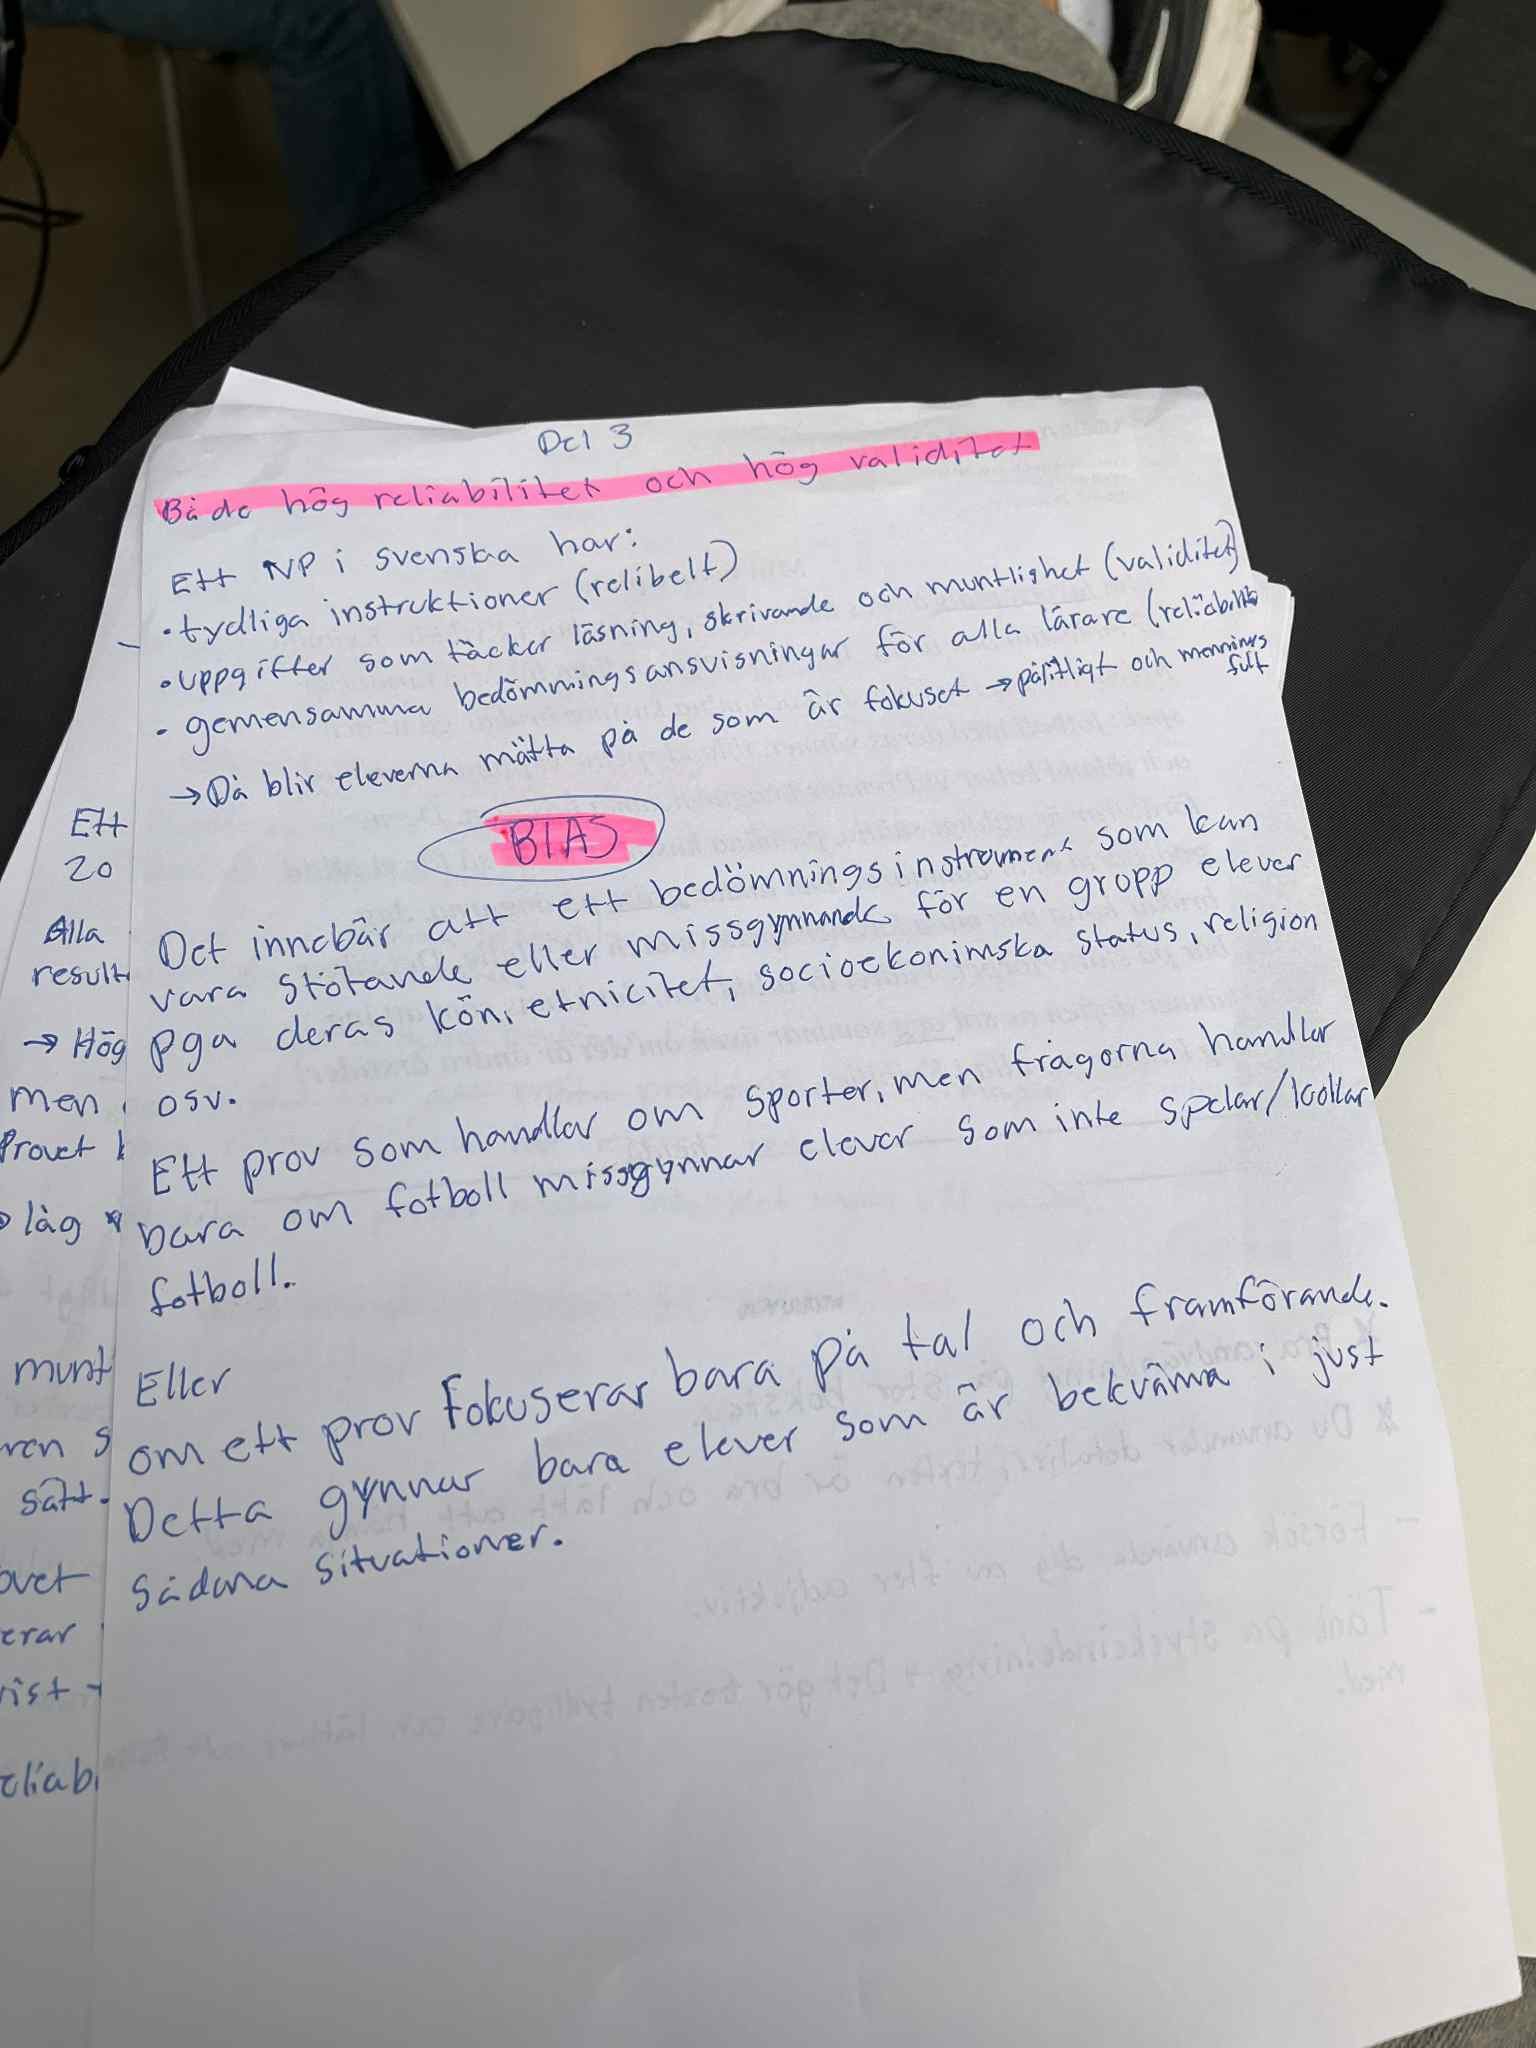 Del 3
Både hög reliabilitet och hög validitet
Ett NP i svenska har:
• tydliga instruktioner (relibelt)
• uppgifter som täcker läsning, skrivande och muntlighet (validitet)
• gemensamma bedömningsansvisningar för alla lärare (reliabilit
→ Då blir eleverna mätta på de som är fokuset → pålitligt och mennings
fult
BIAS
Det innebär att ett bedömningsinstrument som kan
vara stötande eller missgynnande för en grupp elever
pga deras kön, etnicitet, socioekonimska status, religion
osv.
Ett prov som handlar om sporter, men frågorna handlar
bara om fotboll missgynnar elever som inte spelar/kollar
fotboll.
Eller
om ett prov fokuserar bara på tal och framförande.
Detta gynnar bara elever som är bekväma i just
sådana situationer.
Ett
20
Alla
result
→ Hög
men
Provet
låg
munt
ren s
sätt.
ovet
erar
ist
eliabi